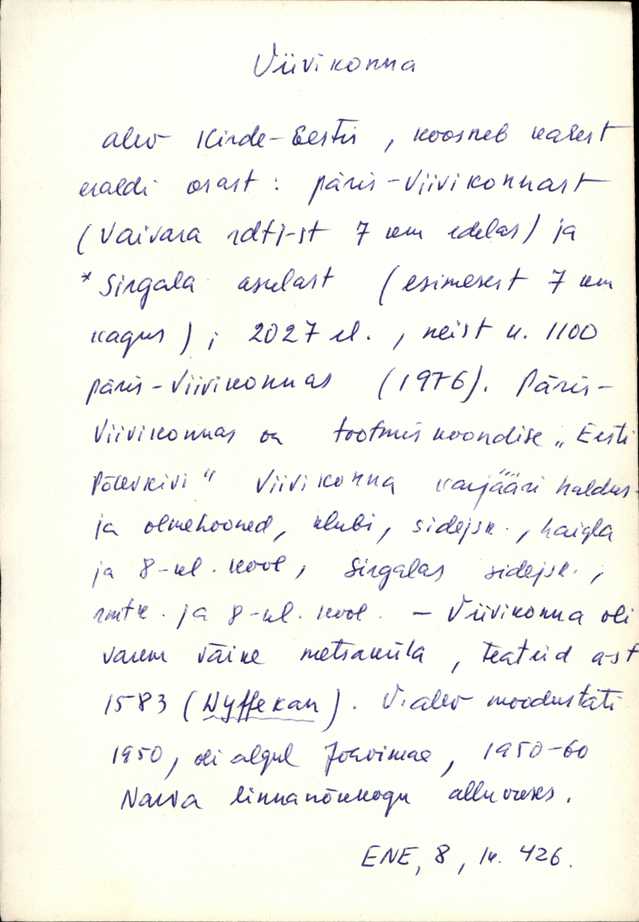 Viivikonna
alev Kirde-Eestis, koosneb kahest
eraldi osast: päris-Viivikonnast
(Vaivara rdtj-st 7 km edelas) ja
*Sirgala asulast (esimesest 7 km
kagus); 2027 el., neist u. 1100
päris-Viivikonnas (1976). Päris-
Viivikonnas on tootmiskoondise "Eesti
Põlevkivi" Viivikonna karjääri haldus-
ja olmehooned, klubi, sidejsk., haigla
ja 8-kl. kool, Sirgalas sidejsk.,
rmtk. ja 8-kl. kool. - Viivikonna oli
varem väike metsaküla, teateid a-st
1583 (Wyffekan). V. alev moodustati
1950, oli algul Jõhvimaa, 1950-60
Narva linnanõukogu alluvuses.
ENE, 8, lk. 426.